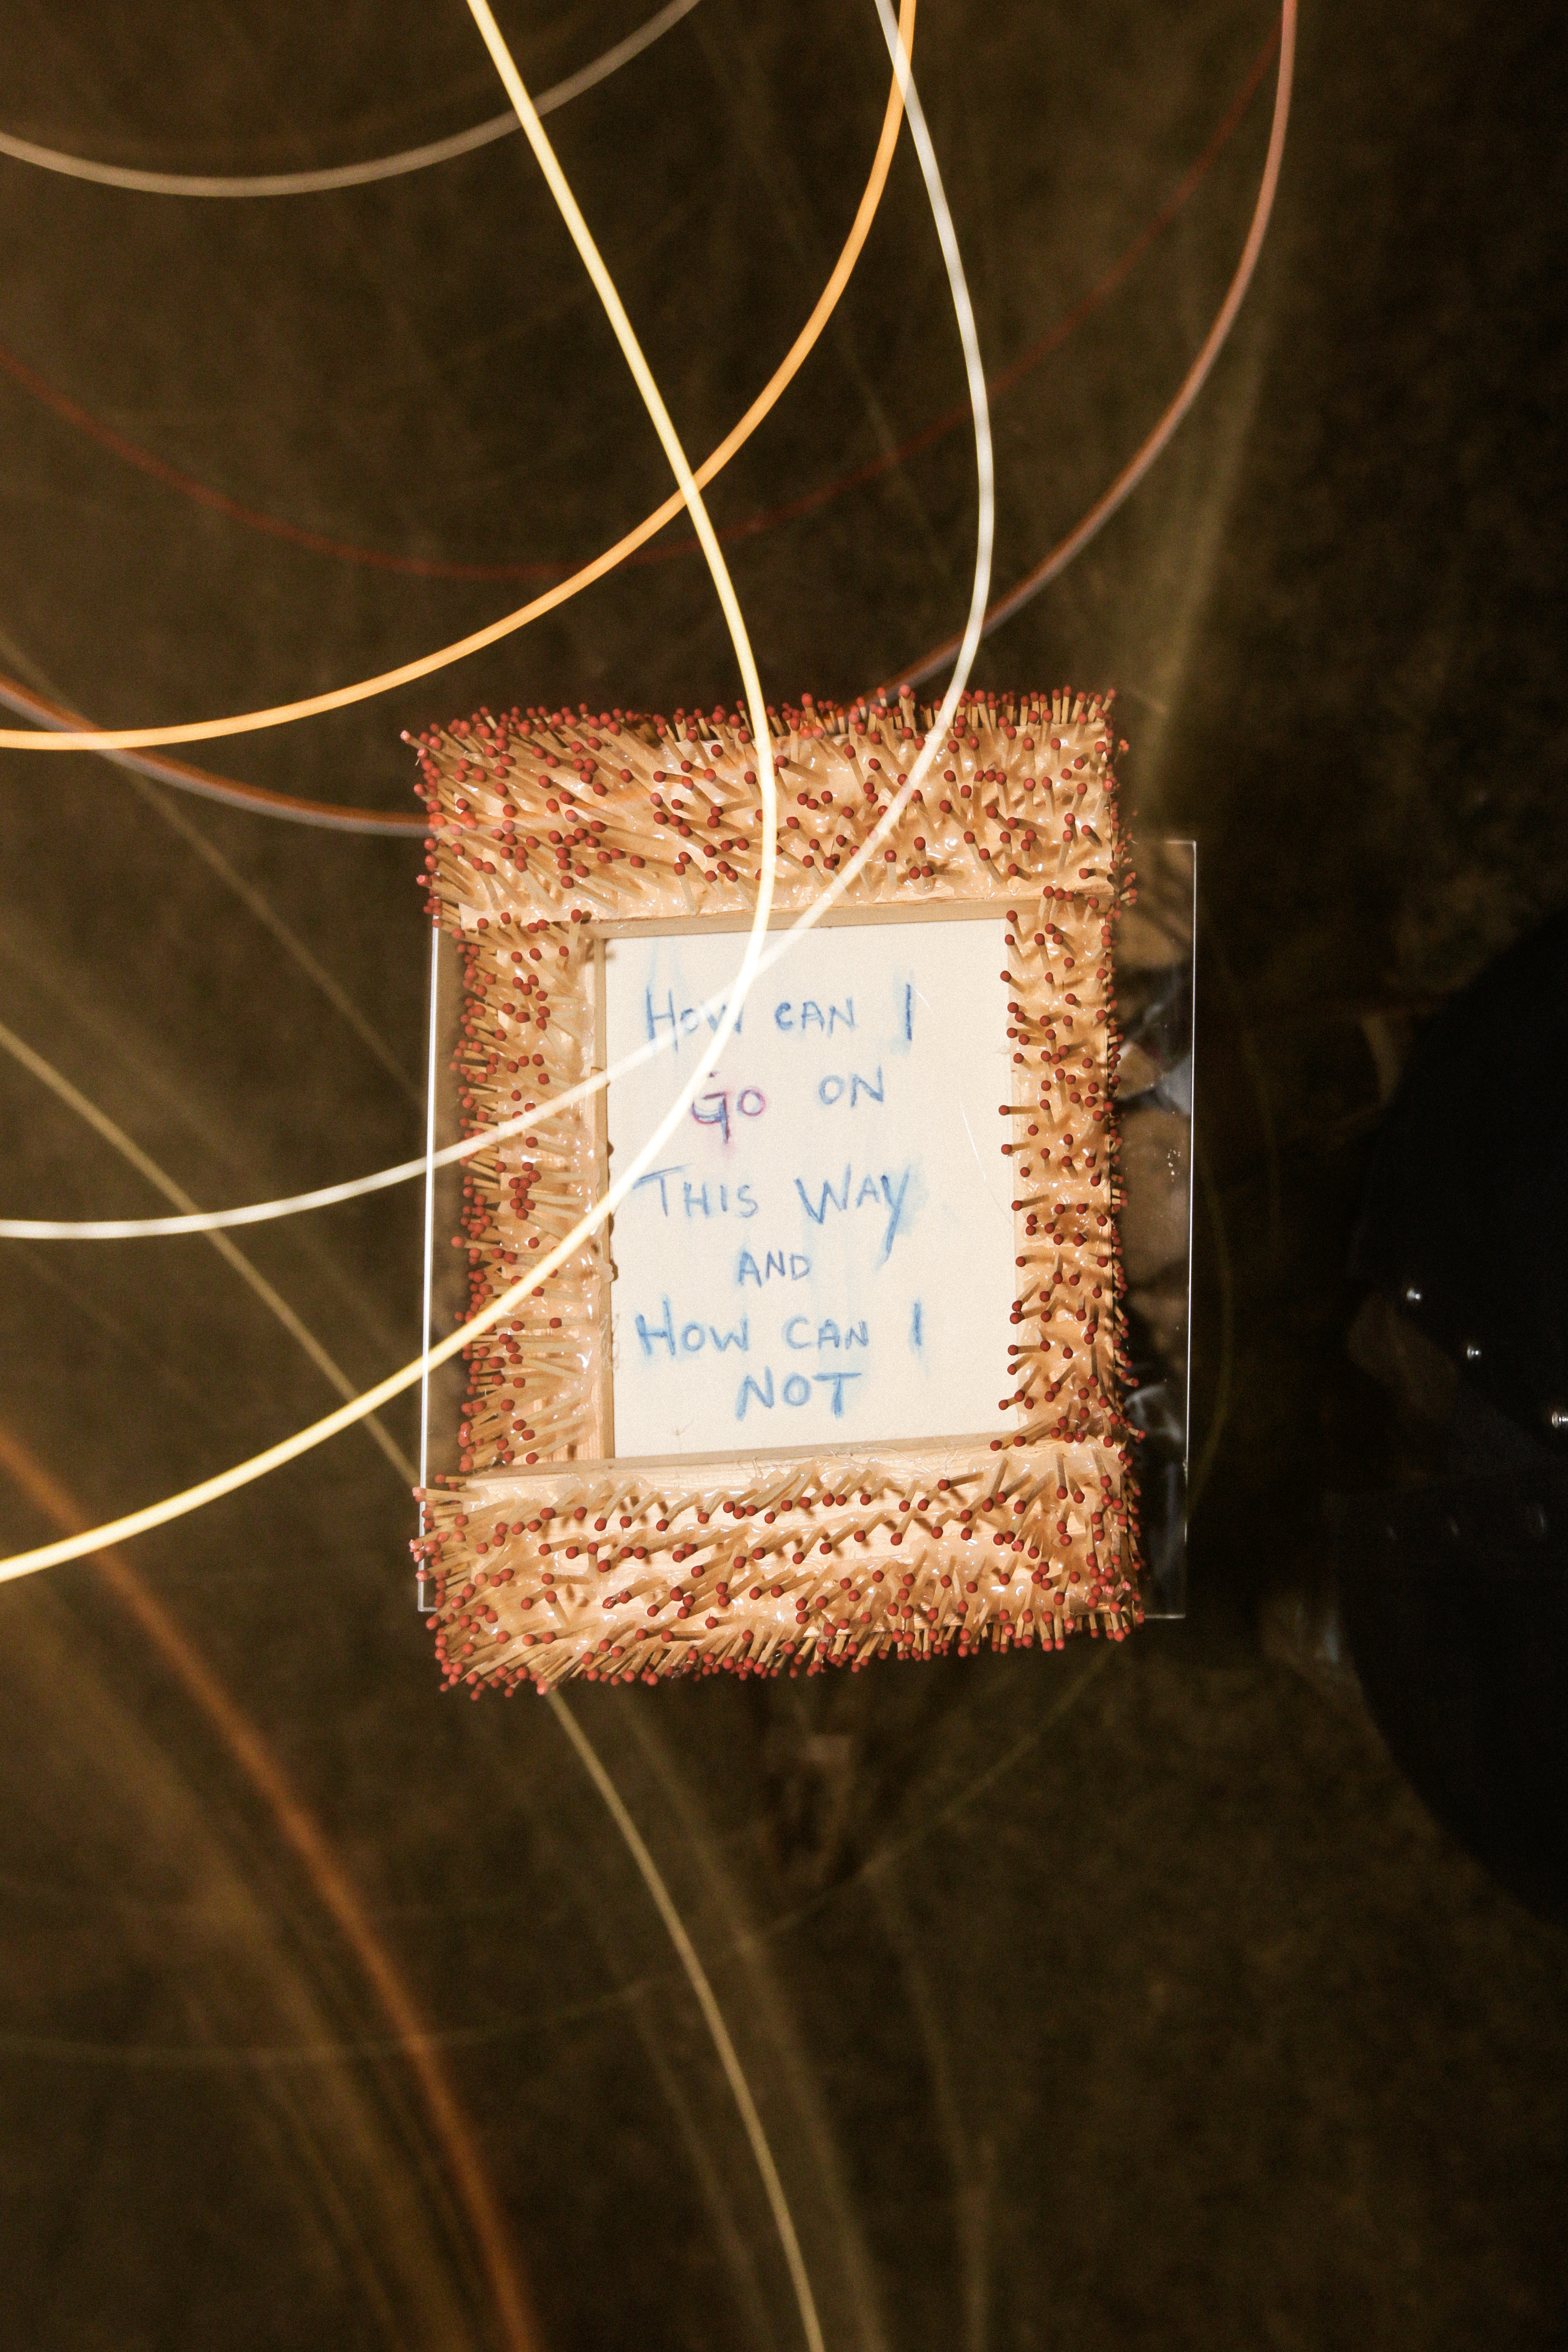 HOW CAN I
GO ON
THIS WAY
AND
HOW CAN I
NOT